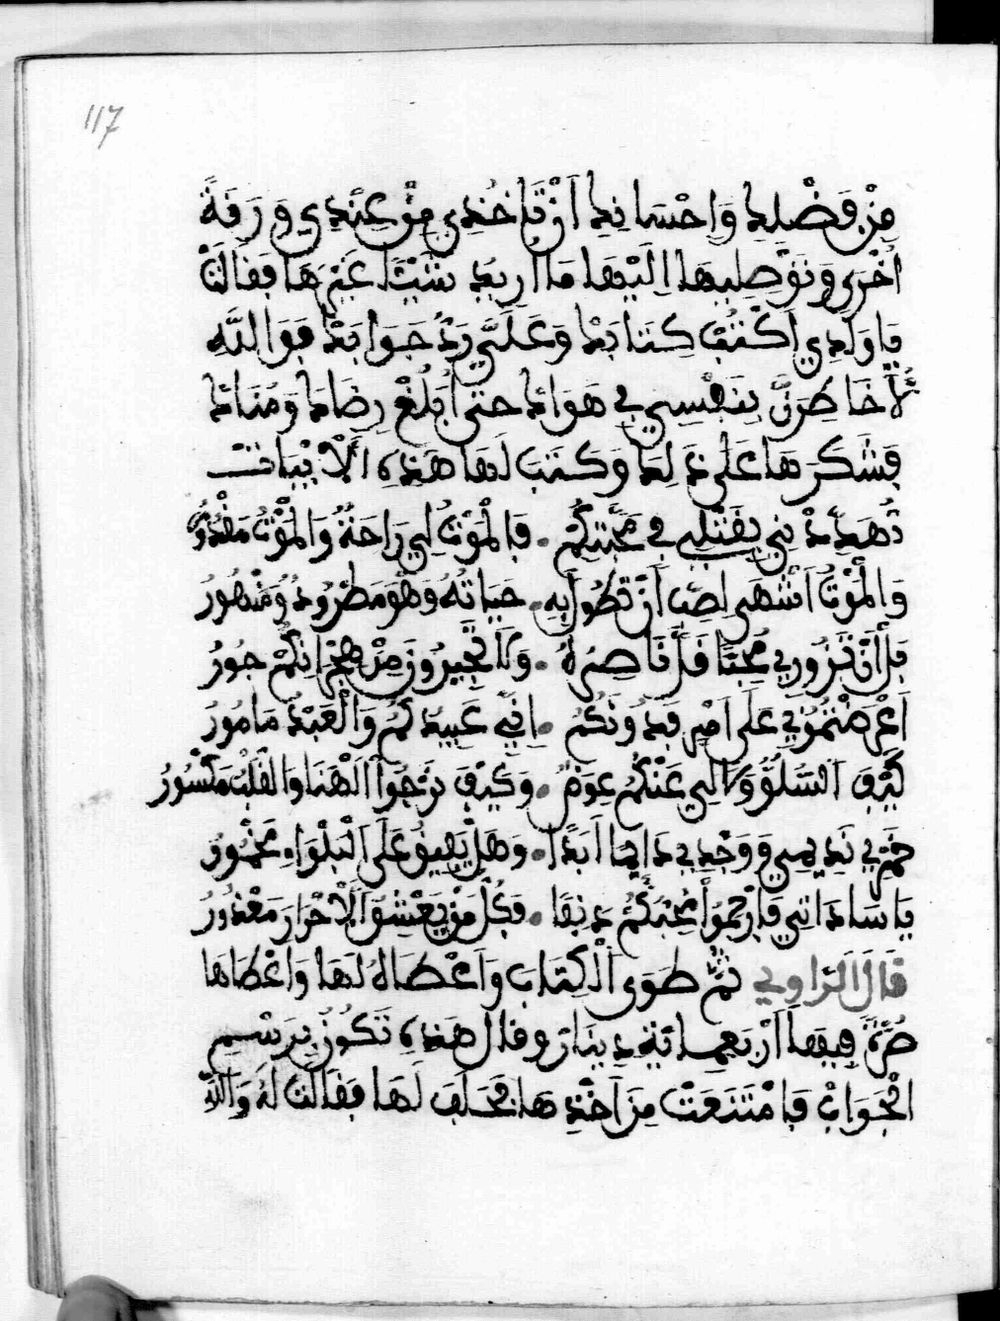 117
مِنْ فَضْلِكِ وَاِحْسَانِكِ اَنْ تَاخُذِي مِنْ عِنْدِي وَرَقَةً
اُخْرَى وَتَوْصِلِيهَا اِلَيْهَا مَا اُرِيدُ شَيْئًا غَيْرَهَا فَقَالَتْ
يَا وَلَدِي اُكْتُبْ كِتَابَكَ وَعَلَيَّ رَدُّ جَوَابَكَ فَوَاللَّهِ
لَأُخَاطِرَنَّ بِنَفْسِي فِي هَوَائِكَ حَتَّى اَبْلُغَ رِضَاكَ وَمُنَائِكَ
فَشَكَرَهَا عَلَى ذَلِكَ وَكَتَبَ لَهَا هَذِهِ اَلْاَبْيَات
تُهَدِّدْنِي بِقَتْلِي فِي مَحَبَّتِكُمْ . فَالْمَوْتُ لِي رَاحَةٌ وَالْمَوْتُ مَقْدُورُ
وَالْمَوْتُ اَشْهَى لِصَبٍّ اَنْ تَطُولَ بِهِ . حَيَاتُهُ وَهُوَ مَطْرُودٌ وَمَنْهُورُ
فَلَ اَنْ تَزُورُ فِي مُحِبًّا قَلَّ نَاصِرُهُ . وَلَا تُجِيرُونَ مِنْ هِجْرَانِكُمْ جُورُ
اَعْرَضْتُمُونِي عَلَى اَمْرٍ فَدُونَكُمْ . اِنِّي عَبِيدٌ لَكُمْ وَالْعَبْدُ مَامُورُ
كَيْفَ السُّلُوُّ وَلَا لِي عَنْكُمْ عِوَضٌ . وَكَيْفَ نَرْجُوا اَلْهَنَا وَالْقَلْبُ مَكْسُورُ
خَمْرِي نَدِيمِي وَوَجْدِي دَايِمًا اَبَدًا . وَهَلْ يَفِيقُ عَلَى الْبَلْوَاءِ مَخْمُورُ
يَا سَادَاتِي فَارْحَمُوا مُحِبَّكُمْ دَنِفًا . فَكُلُّ مَنْ يَعْشِقِ اَلْاَحْرَارَ مَعْذُورُ
قَالَ اَلرَّاوِي ثُمَّ طَوَى اَلْكِتَابَ وَاَعْطَاهُ لَهَا وَاَعْطَاهَا
صُرَّةً فِيهَا اَرْبَعمِائَة دِينَارٍ وَقَالَ هَذِهِ تَكُونُ بِرَسْمِ
الْجَوَابْ فَامْتَنَعَتْ مِنْ اَخْذِهَا فَحَلَفَ لَهَا فَقَالَتْ لَهُ وَاللَّهِ